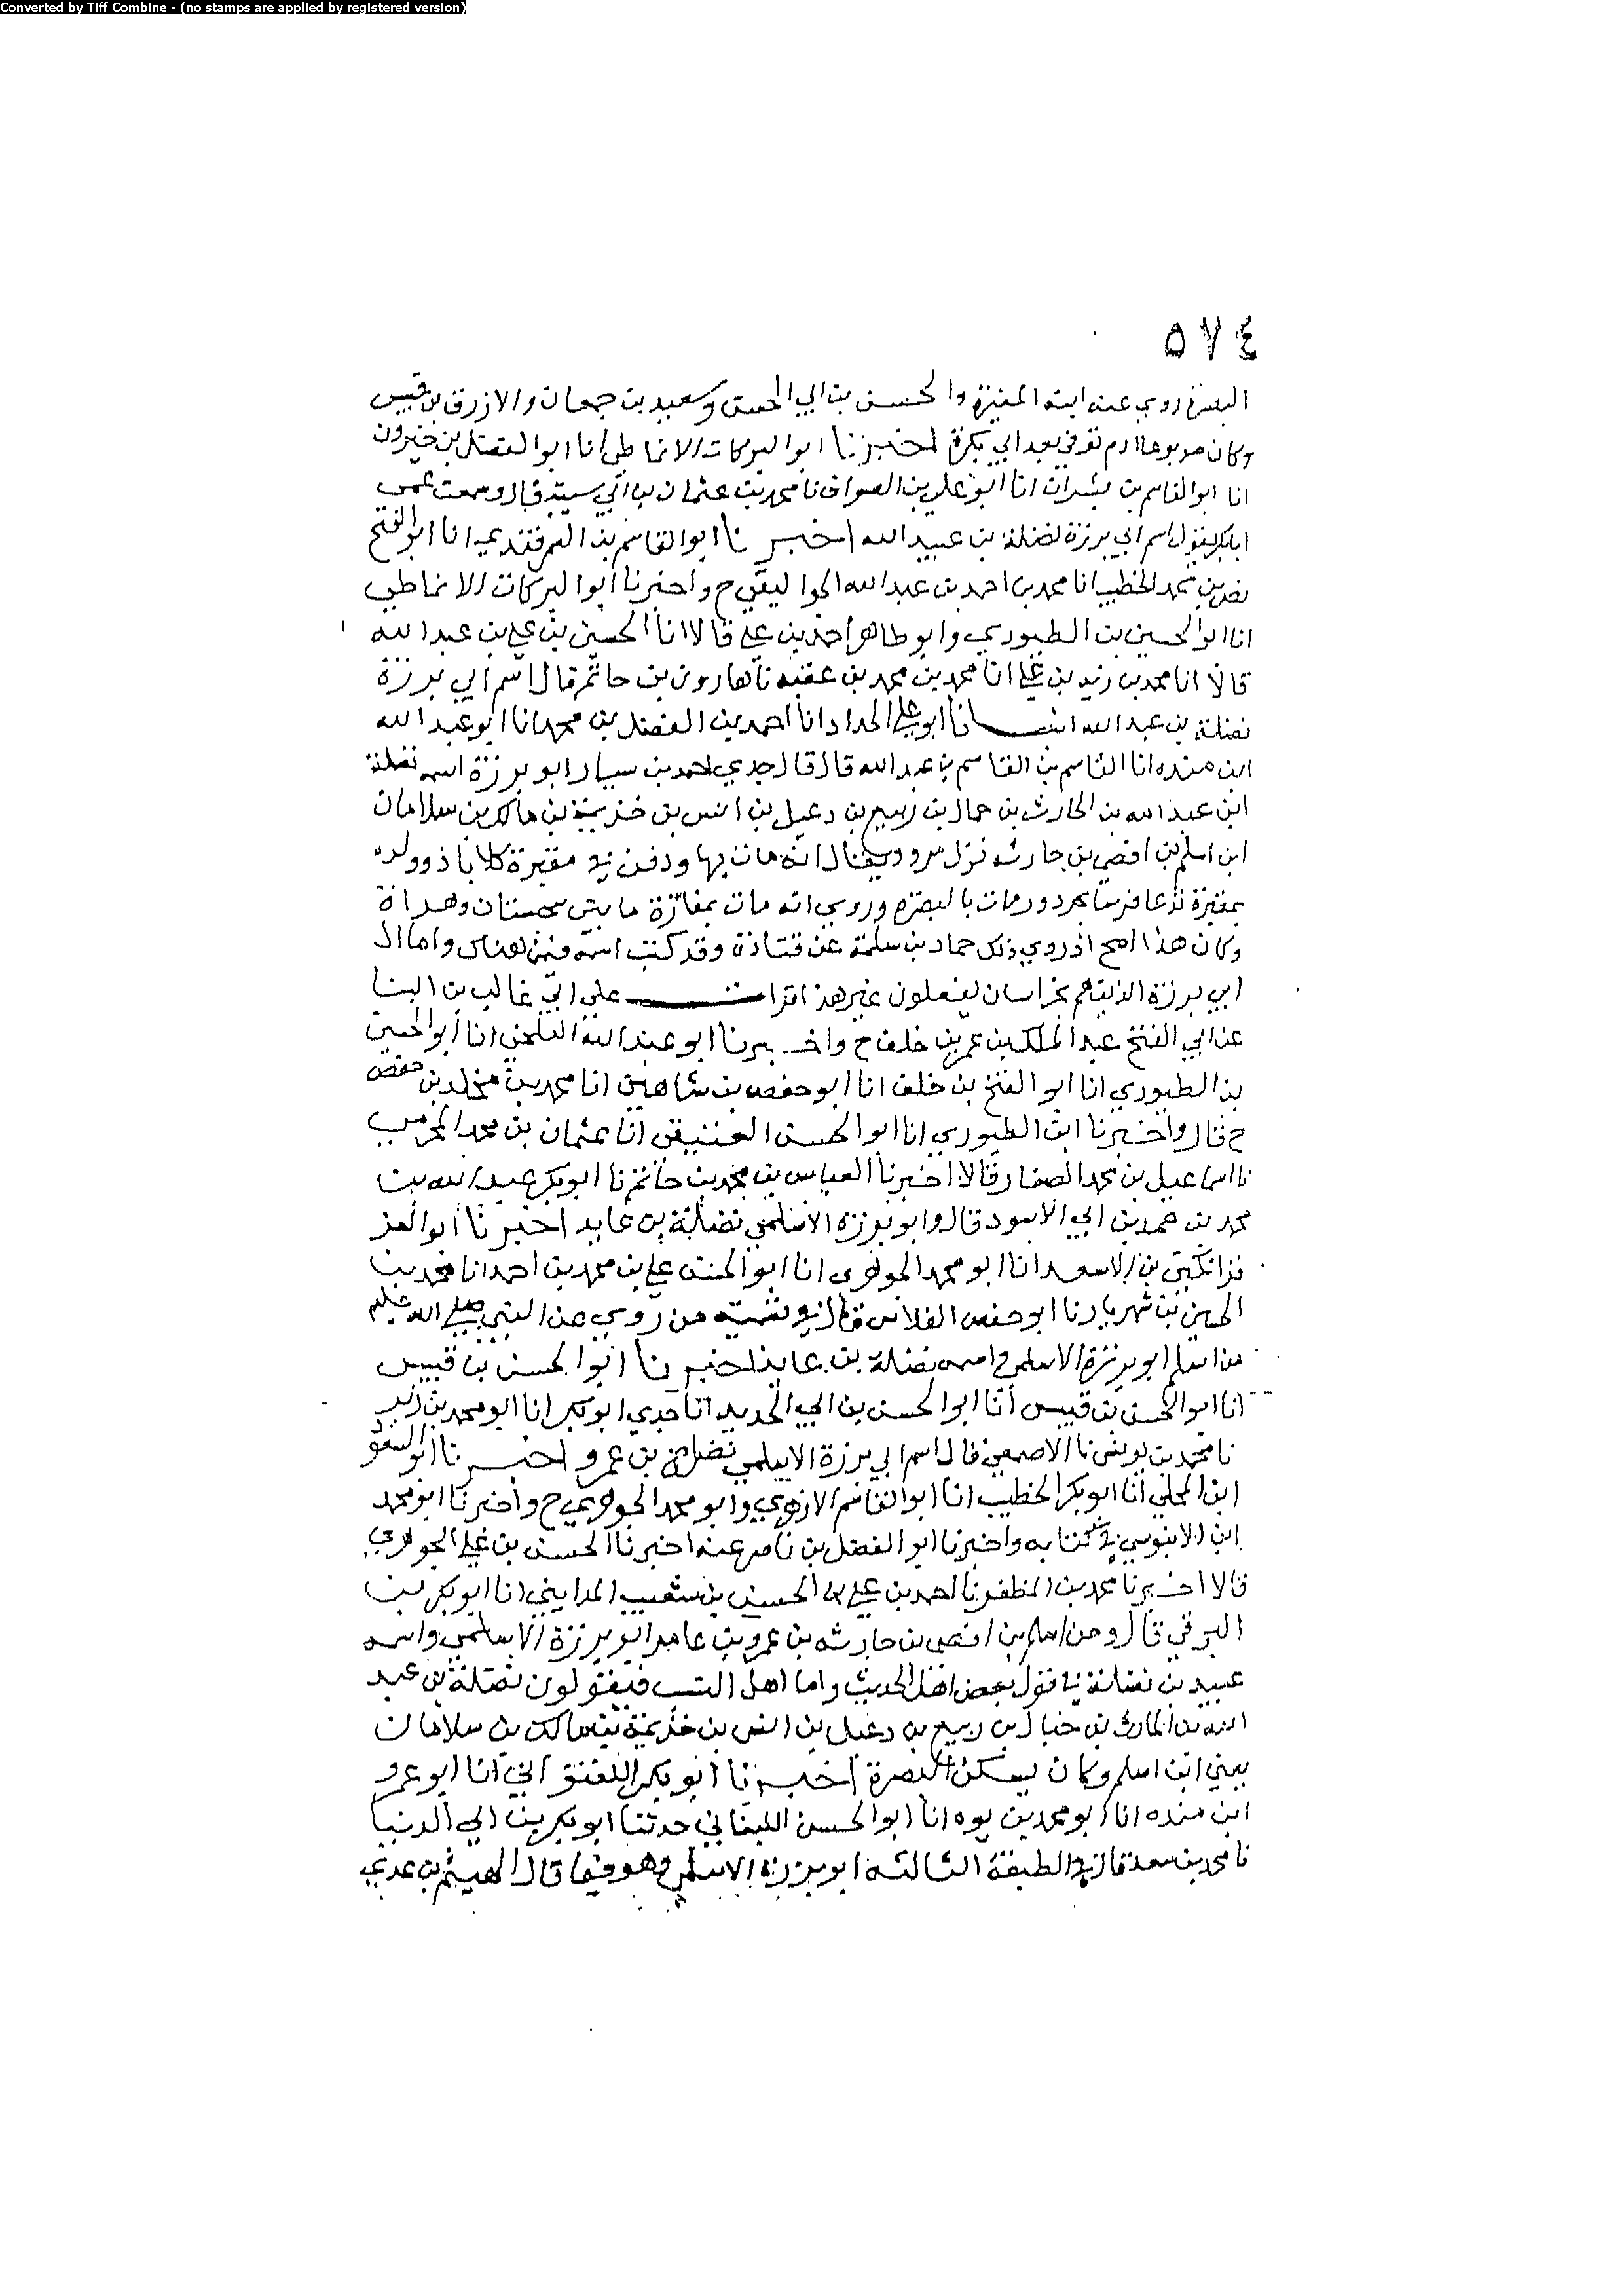 Converted by Tiff Combine - (no stamps are applied by registered version)
٥٧٤
البصرة روي عنه ابنه المغيرة والحسن بن ابي الحسن وسعيد بن جمهان والازرق بن قيس
وكان مربوعا ادم توفي بعد ابي بكرة اخبرنا ابو البركات الانماطي انا ابو الفضل بن خيرون
انا ابو القاسم بن بشران انا ابو علي بن الصواف نا محمد بن عثمان بن ابي شيبة قال وسمعت عمي
ابا بكر يقول اسم ابي برزة نضلة بن عبيد الله اخبرنا ابو القاسم بن السمرقندي انا ابو الفتح
نصر بن محمد الخطيب انا محمد بن احمد بن عبد الله الجواليقي ح واخبرنا ابو البركات الانماطي
انا ابو الحسين بن الطيوري وابو طاهر احمد بن علي قالا انا الحسين بن علي بن عبد الله
قالا انا محمد بن زيد بن علي انا محمد بن محمد بن عقبة نا هارون بن حاتم قال اسم ابي برزة
نضلة بن عبد الله انبانا ابو علي الحداد انا احمد بن الفضل بن محمد انا ابو عبد الله
ابن منده انا القاسم بن القاسم بن عبد الله قال قال جدي احمد بن سيار ابو برزة اسمه نضلة
ابن عبد الله بن الحارث بن حمال بن ربيع بن دعبل بن انس بن خزيمة بن مالك بن سلامان
ابن اسلم بن افصى بن حارثه نزل مرو ويقال انه مات بها ودفن في مقبرة كلاباذ وولده
بمقبرة ومات بالبصرة وروي انه مات بمفازة ما بين سجستان وهراة
وكان هذا اصح اذ روي ذلك حماد بن سلمة عن قتادة وقد كنت هناك واما ال
ابي برزة الذين هم بخراسان يفعلون غير هذا قرات على ابي غالب بن البنا
عن ابي الفتح عبد الملك بن عمر بن خلف ح واخبرنا ابو عبد الله البلخي انا ابو الحسين
بن الطيوري انا ابو الفتح بن خلف انا ابو حفص بن شاهين انا محمد بن مخلد بن حفص
ح قال واخبرنا ابن الطيوري انا ابو الحسن العتيقي انا عثمان بن محمد المخرمي
نا اسماعيل بن محمد الصفار قالا اخبرنا العباس بن محمد بن حاتم نا ابو بكر عبد الله بن
محمد بن حميد بن ابي الاسود قال وابو برزه الاسلمي نضلة بن عابد اخبرنا ابو العز
قراتكين بن الاسعد انا ابو محمد الجوهري انا ابو الحسن علي بن محمد بن احمد انا محمد بن
الحسين بن شهريار نا ابو حفص الفلاس قال في تسمية من روي عن النبي صلى الله عليه
من اسلم ابو برزة الاسلمي واسمه نضلة بن عابد اخبرنا ابو الحسن بن قبيس
انا ابو الحسن بن قبيس انا ابو الحسن بن ابي الحديد انا جدي ابو بكر انا ابو محمد بن زبر
نا محمد بن يونس نا الاصمعي قال اسم ابي برزة الاسلمي نضلة بن عمرو اخبرنا ابو السعود
ابن المجلي انا ابو بكر الخطيب انا ابو القاسم الازهري وابو محمد الجوهري ح واخبرنا ابو محمد
ابن الابنوسي في كتابه واخبرنا ابو الفضل بن ناصر عنه اخبرنا الحسن بن علي الجوهري
قالا اخبرنا محمد بن المظفر نا احمد بن علي بن الحسين بن شعيب المدايني انا ابو بكر بن
البرقي قال ومن اسلم بن افصى بن حارثه بن عمرو بن عامر ابو برزة الاسلمي واسمه
عبيد بن نضلة في قول بعض اهل الحديث واما اهل النسب فيقولون نضلة بن عبد
الله بن الحارث بن حبال بن ربيع بن دعبل بن انس بن خزيمة بن مالك بن سلامان
يعني ابن اسلم وكان يسكن البصرة اخبرنا ابو بكر اللفتواني انا ابو عمرو
ابن منده انا ابو محمد بن يوه انا ابو الحسن اللبناني حدثنا ابو بكر بن ابي الدنيا
نا محمد بن سعد قال في الطبقة الثالثه ابو برزة الاسلمي وهو فيما قال الهيثم بن عدي